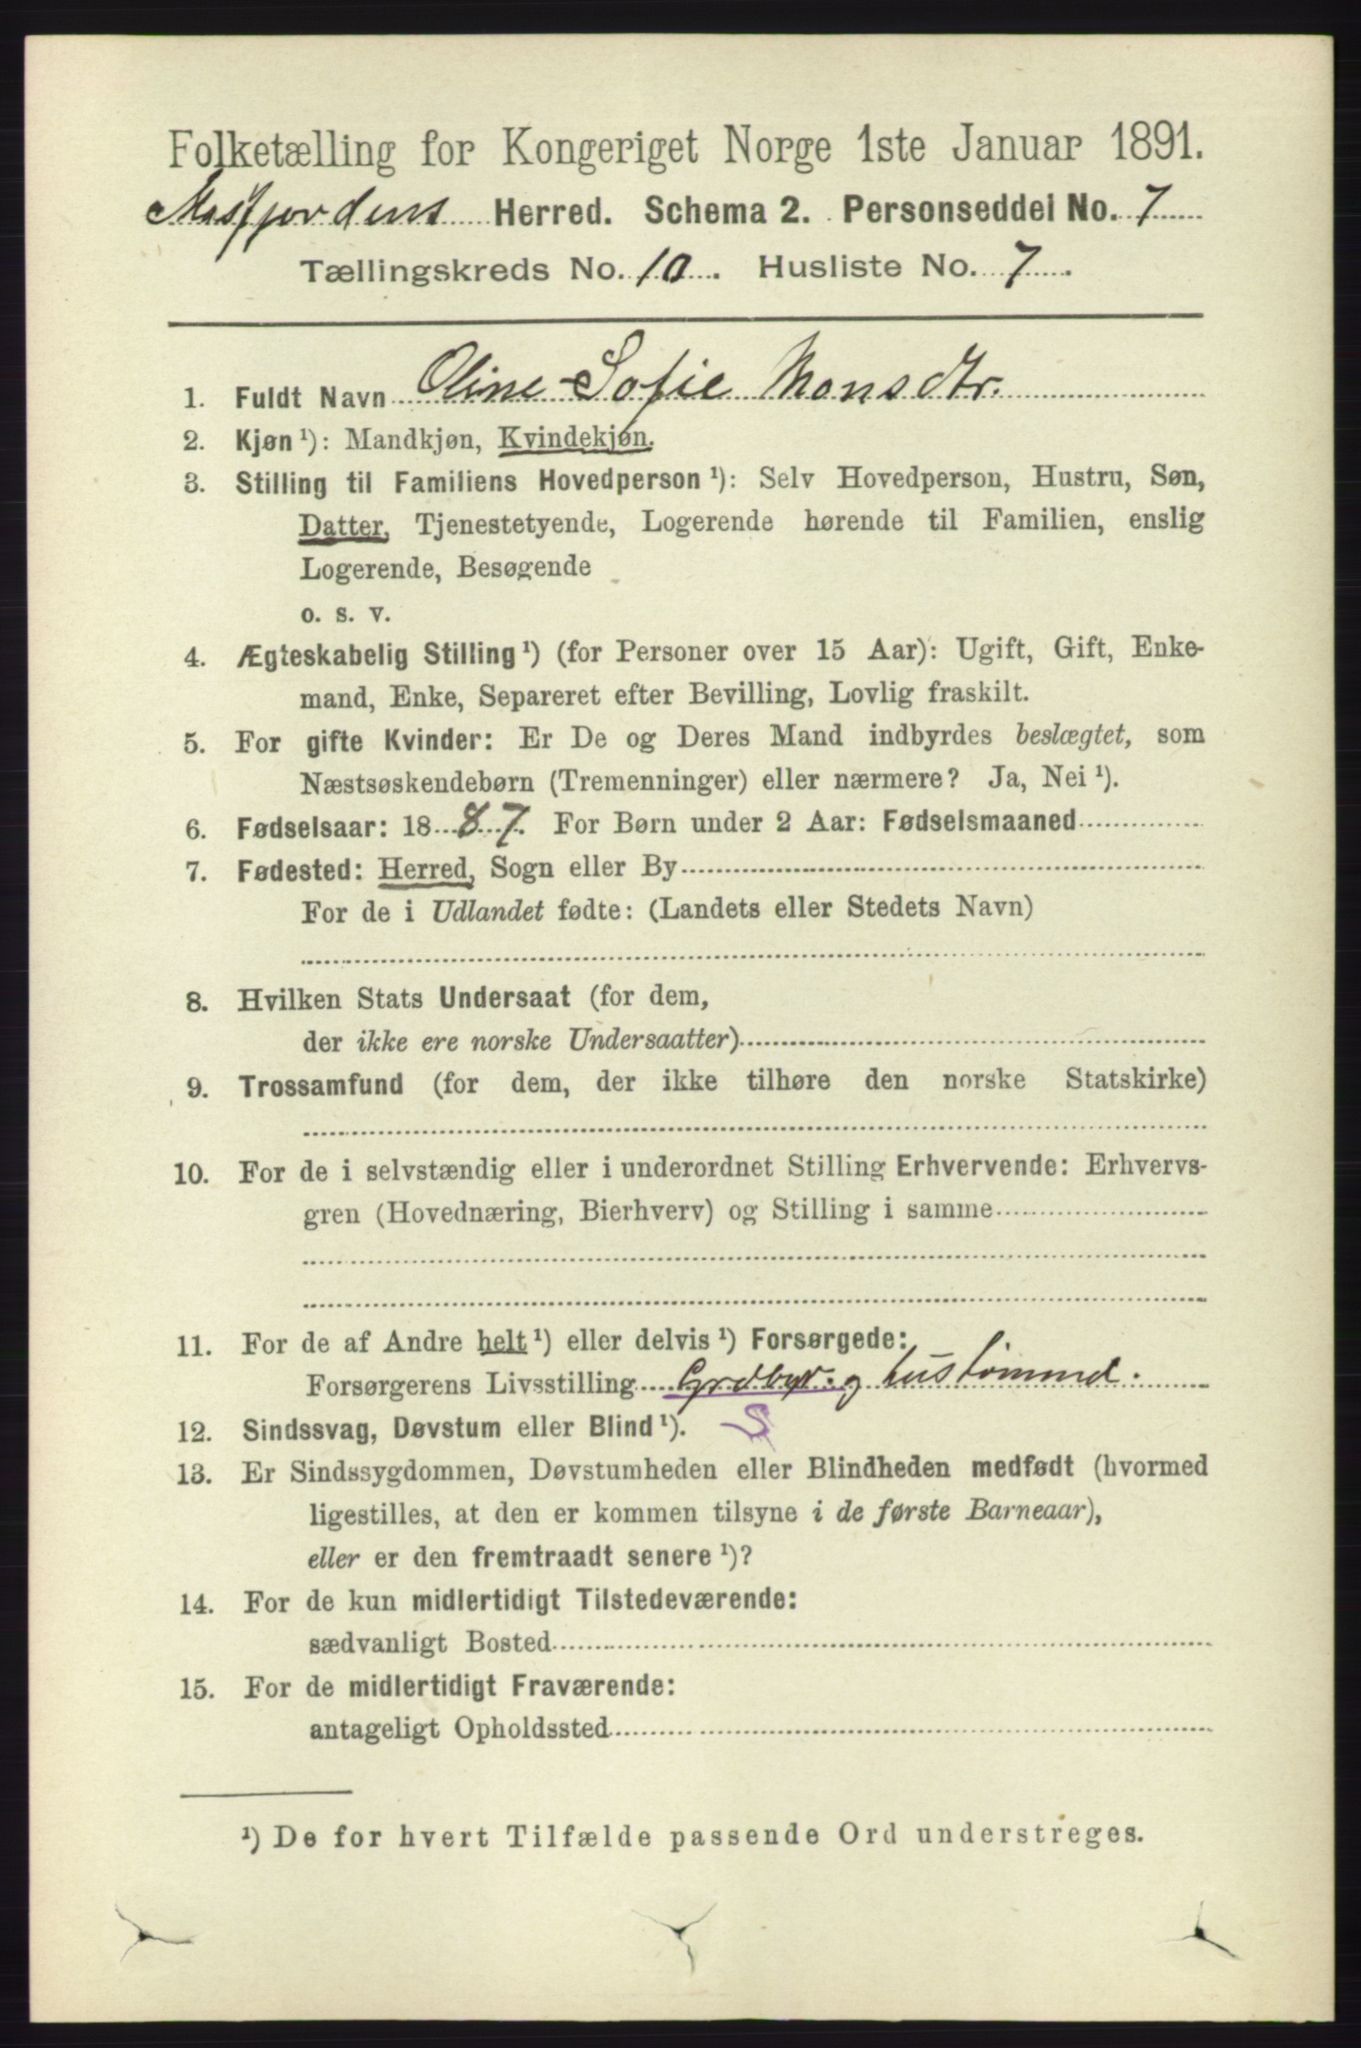 Folketælling for Kongeriget Norge 1ste Januar 1891.
Masfjordens Herred. Schema 2. Personseddel No. 7
Tællingskreds No. 10. Husliste No. 7.
1. Fuldt Navn Oline Sofie Monsdtr.
2. Kjøn ¹): Mandkjøn, Kvindekjøn.
3. Stilling til Familiens Hovedperson ¹): Selv Hovedperson, Hustru, Søn,
Datter, Tjenestetyende, Logerende hørende til Familien, enslig
Logerende, Besøgende
o. s. v.
4. Ægteskabelig Stilling ¹) (for Personer over 15 Aar): Ugift, Gift, Enke-
mand, Enke, Separeret efter Bevilling, Lovlig fraskilt.
5. For gifte Kvinder: Er De og Deres Mand indbyrdes beslægtet, som
Næstsøskendebørn (Tremenninger) eller nærmere? Ja, Nei ¹).
6. Fødselsaar: 1887. For Børn under 2 Aar: Fødselsmaaned
7. Fødested: Herred, Sogn eller By
For de i Udlandet fødte: (Landets eller Stedets Navn)
8. Hvilken Stats Undersaat (for dem,
der ikke ere norske Undersaatter)
9. Trossamfund (for dem, der ikke tilhøre den norske Statskirke)
10. For de i selvstændig eller i underordnet Stilling Erhvervende: Erhvervs-
gren (Hovednæring, Bierhverv) og Stilling i samme
11. For de af Andre helt ¹) eller delvis ¹) Forsørgede:
Forsørgerens Livsstilling Grdbr. og hustømmd.
12. Sindssvag, Døvstum eller Blind ¹). S
13. Er Sindssygdommen, Døvstumheden eller Blindheden medfødt (hvormed
ligestilles, at den er kommen tilsyne i de første Barneaar),
eller er den fremtraadt senere ¹)?
14. For de kun midlertidigt Tilstedeværende:
sædvanligt Bosted
15. For de midlertidigt Fraværende:
antageligt Opholdssted
¹) De for hvert Tilfælde passende Ord understreges.